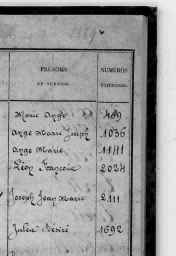 PRÉNOMS
NUMÉROS
Marie Ange 489
Ange Marie Joseph 1036
Ange Marie 1141
Léon François 2024
Joseph Jean Marie 2111
Julien Désiré 1692